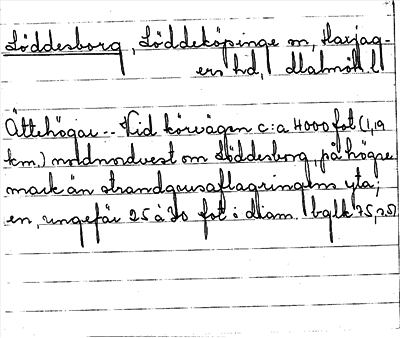 Löddesborg, Löddeköpinge sn, Harjag-
ers hd, Malmöh. l.
Ättehögar. - Vid körvägen c:a 4000 fot (1,19
km.) nordnordvest om Löddesborg, på högre
mark än strandgrusaflagringens yta;
en, ungefär 25 à 30 fot i diam. bglk 75,